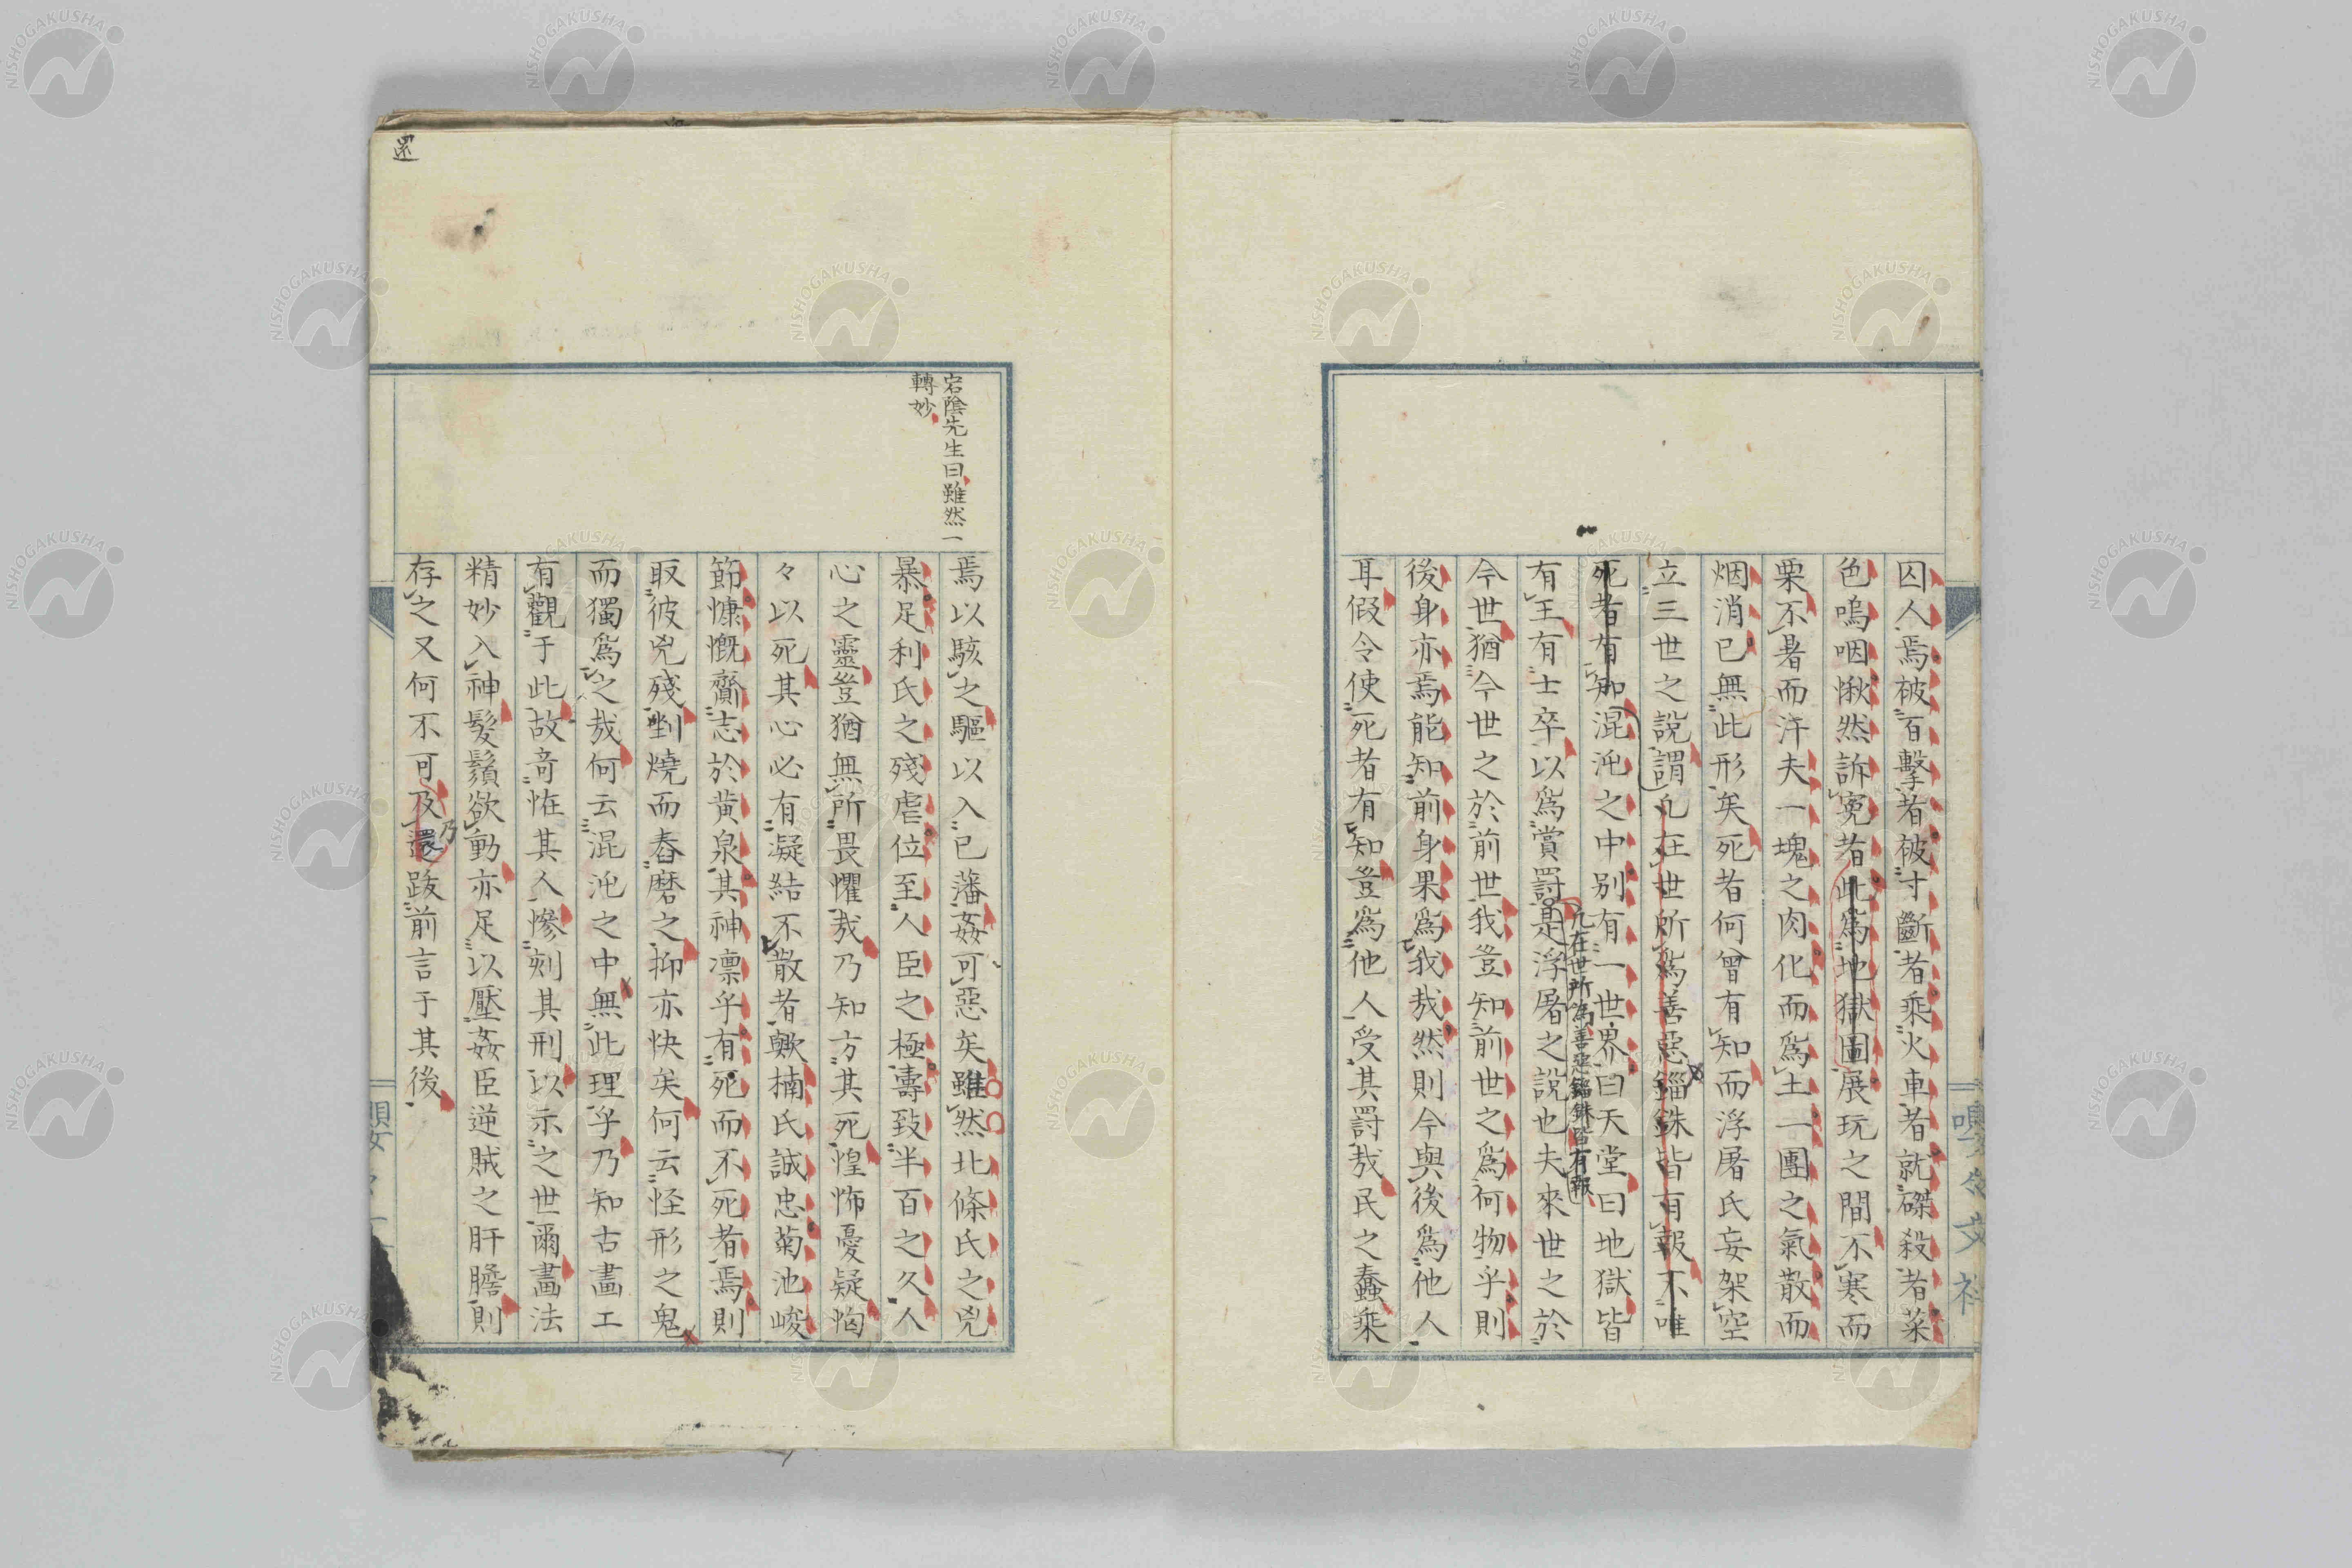 囚人焉被百擊者被寸斷者乘火車者就磔殺者菜
色嗚咽愀然訴寃者此爲地獄圖展玩之間不寒而
栗不暑而汗夫一塊之肉化而爲土一團之氣散而
烟消已無此形矣死者何曾有知而浮屠氏妄架空
立三世之說謂凢在世所爲善惡錙銖皆有報不唯
死者有知混沌之中別有一世界曰天堂曰地獄皆
凢在世所爲善惡錙銖皆有報
有王有士卒以爲賞罸是浮屠之說也夫來世之於
今世猶今世之於前世我豈知前世之爲何物乎則
後身亦焉能知前身果爲我哉然則今與後爲他人
耳假令使死者有知豈爲他人受其罸哉民之蠢乘
宕陰先生曰雖然一
轉妙
焉以駭之驅以入已藩姦可惡矣雖然北條氏之兇
暴足利氏之殘虐位至人臣之極壽致半百之久人
心之靈豈猶無所畏懼哉乃知方其死惶怖憂疑恟
々以死其心必有凝結不散者歟楠氏誠忠菊池峻
節慷慨齎志於黄泉其神凛乎有死而不死者焉則
取彼兇殘剉燒而舂磨之抑亦快矣何云怪形之鬼
而獨爲之哉何云混沌之中無此理乎乃知古畵工
有觀于此故竒恠其人慘刻其刑以示之世爾畵法
精妙入神髮鬚欲動亦足以壓姦臣逆賊之肝膽則
存之又何不可及還跋前言于其後
乃
還
NISHOGAKUSHA